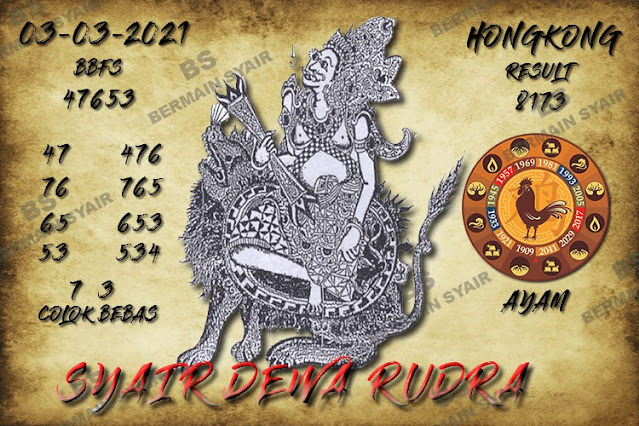 03-03-2021
BBFS
47653
HONGKONG
RESULT
8173
47 476
76 765
65 653
53 534
7 3
COLOK BEBAS
1957 1969 1981 1993 2005 2017 2029 2041 1909 1921 1933 1945
AYAM
SYAIR DEWA RUDRA
BS
BERMAIN SYAIR
BERMAIN SYAIR
BS
BERMAIN SYAIR
BERMAIN SYAIR
BS
BERMAIN SYAIR
BERMAIN SYAIR